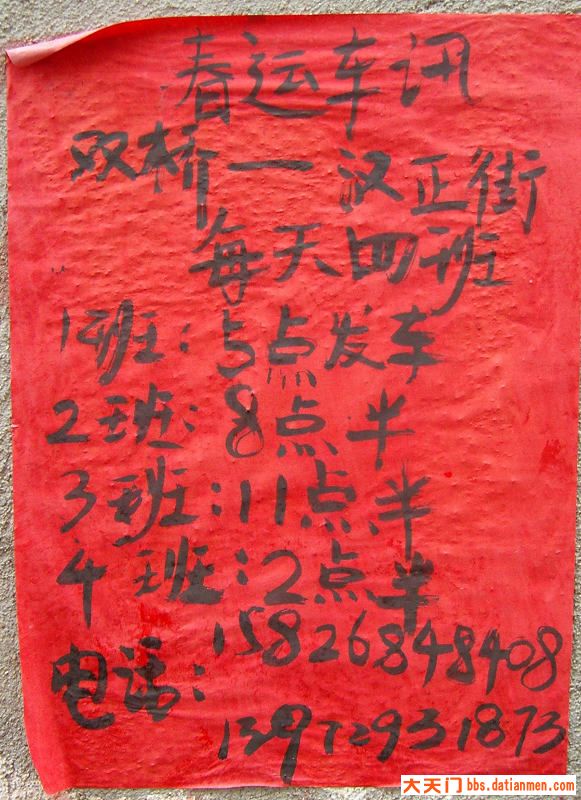 春运车讯
双桥一汉正街
每天四班
1班:5点发车
2班:8点半
3班:11点半
4班:2点半
电话:15826848408
13972931873
大天门 bbs.datianmen.com